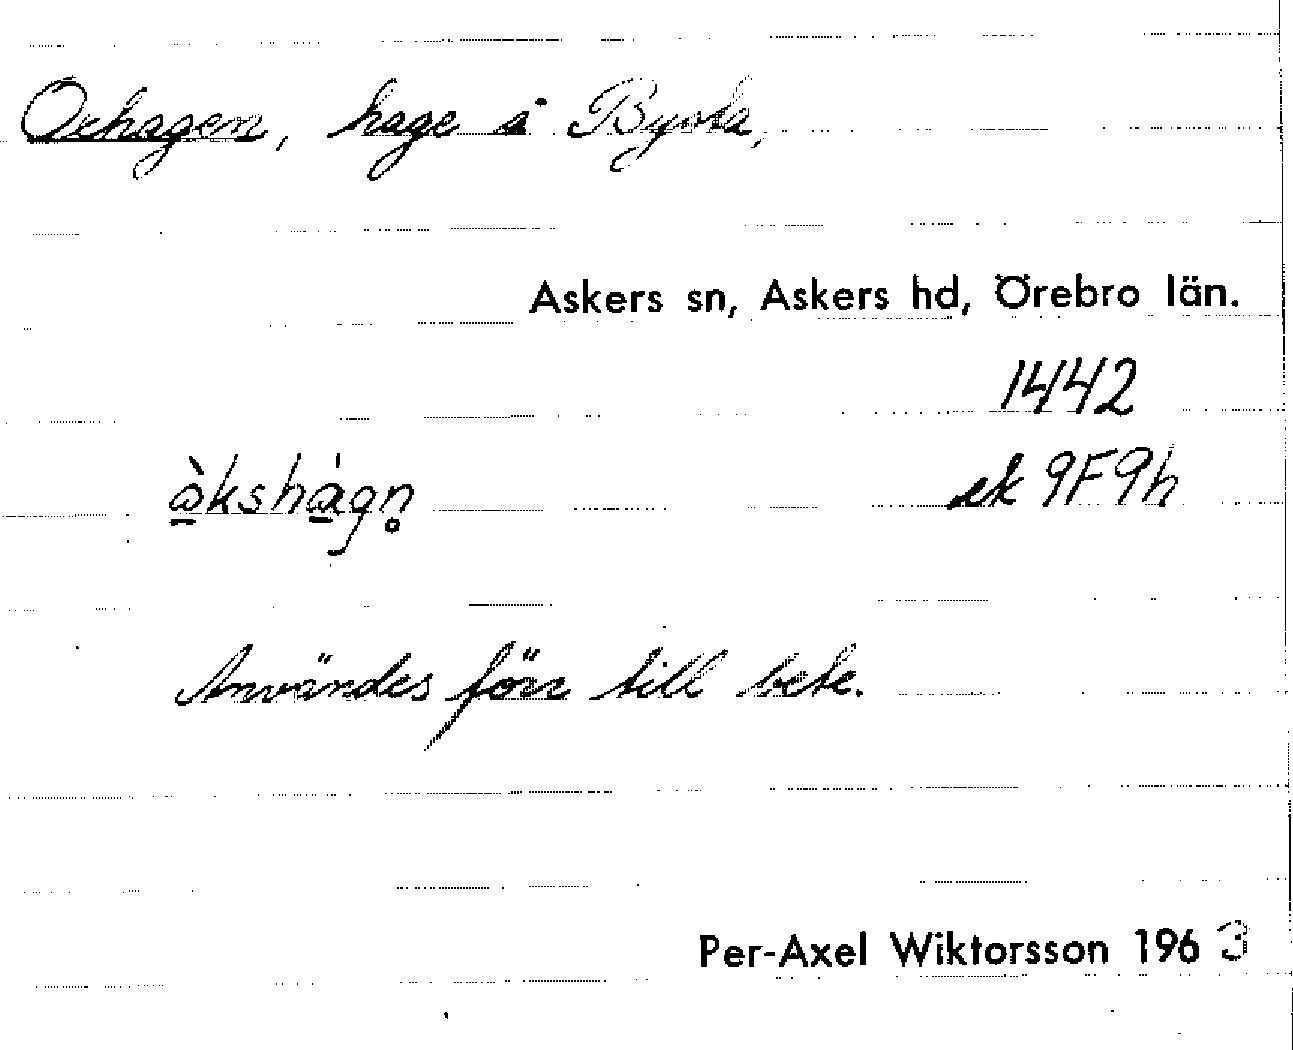 Oxhagen, hage å Bysta,
Askers sn, Askers hd, Örebro län.
1442
ek 9F9h
Användes förr till bete.
Per-Axel Wiktorsson 1963